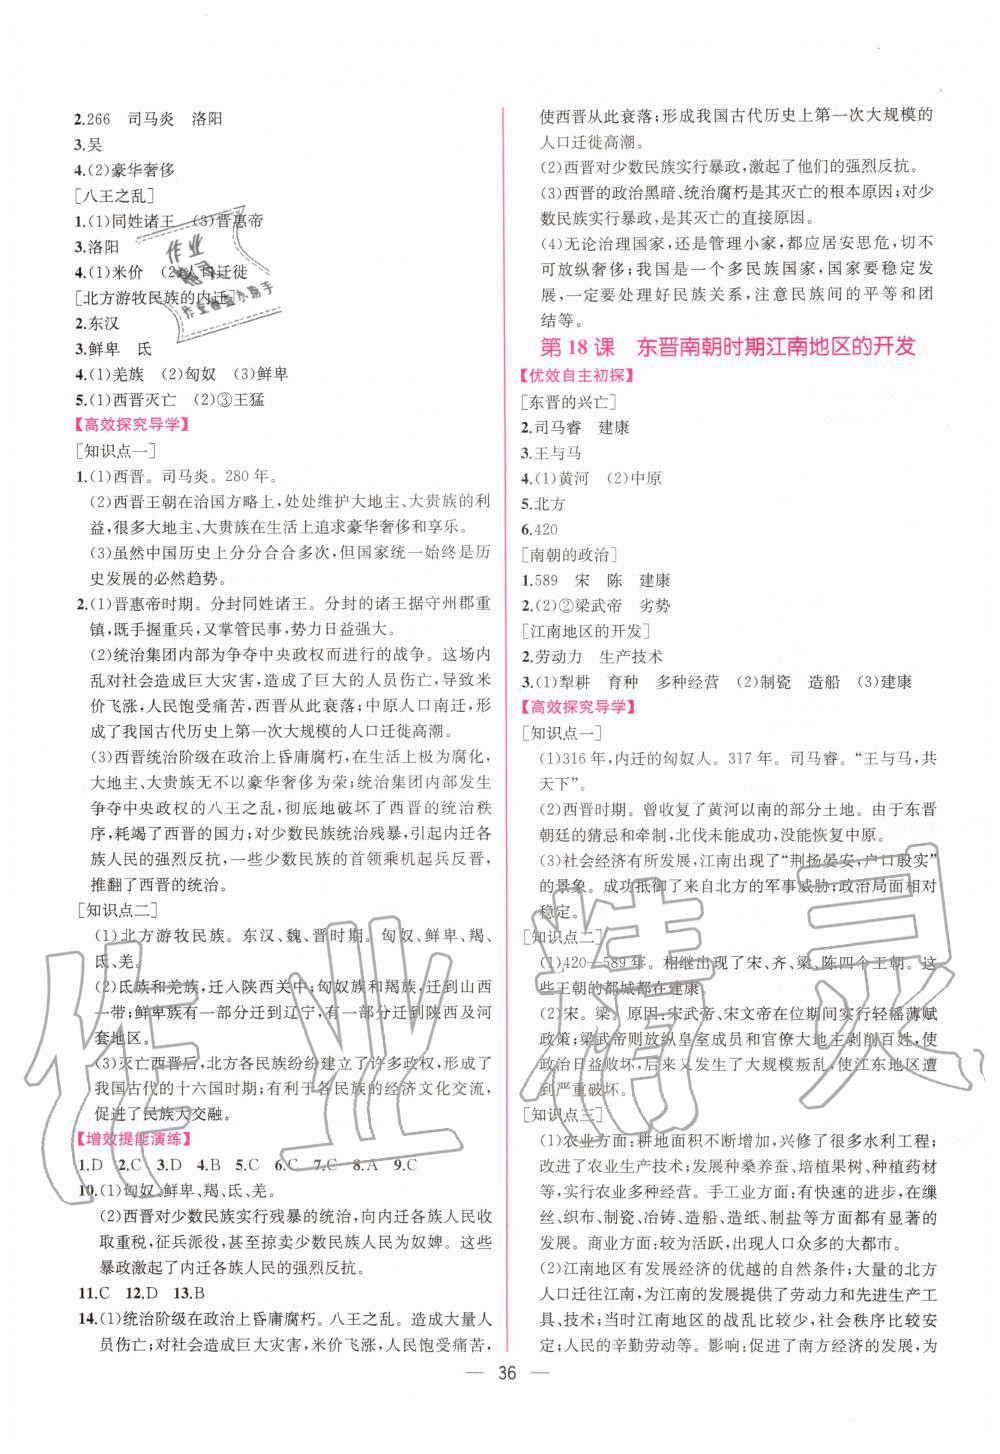 2.266　司马炎　洛阳
3.吴
4.(2)豪华奢侈
[八王之乱]
1.(1)同姓诸王　(3)晋惠帝
3.洛阳
4.(1)米价　(2)人口迁徙
[北方游牧民族的内迁]
2.东汉
3.鲜卑　氐
4.(1)羌族　(2)匈奴　(3)鲜卑
5.(1)西晋灭亡　(2)③王猛
【高效探究导学】
[知识点一]
1.(1)西晋。司马炎。280年。
(2)西晋王朝在治国方略上,处处维护大地主、大贵族的利
益,很多大地主、大贵族在生活上追求豪华奢侈和享乐。
(3)虽然中国历史上分分合合多次,但国家统一始终是历
史发展的必然趋势。
2.(1)晋惠帝时期。分封同姓诸王。分封的诸王据守州郡重
镇,既手握重兵,又掌管民事,势力日益强大。
(2)统治集团内部为争夺中央政权而进行的战争。这场内
乱对社会造成巨大灾害,造成了巨大的人员伤亡,导致米
价飞涨,人民饱受痛苦,西晋从此衰落;中原人口南迁,形
成了我国古代历史上第一次大规模的人口迁徙高潮。
(3)西晋统治阶级在政治上昏庸腐朽,在生活上极为腐化,
大地主、大贵族无不以豪华奢侈为荣;统治集团内部发生
争夺中央政权的八王之乱,彻底地破坏了西晋的统治秩
序,耗竭了西晋的国力;对少数民族统治残暴,引起内迁各
族人民的强烈反抗,一些少数民族的首领乘机起兵反晋,
推翻了西晋的统治。
[知识点二]
(1)北方游牧民族。东汉、魏、晋时期。匈奴、鲜卑、羯、
氐、羌。
(2)氐族和羌族,迁入陕西关中;匈奴族和羯族,迁到山西
一带;鲜卑族有一部分迁到辽宁,有一部分迁到陕西及河
套地区。
(3)灭亡西晋后,北方各民族纷纷建立了许多政权,形成了
我国古代的十六国时期;有利于各民族的经济文化交流,
促进了民族大交融。
【增效提能演练】
1.D　2.C　3.D　4.B　5.C　6.C　7.C　8.A　9.C
10.(1)匈奴、鲜卑、羯、氐、羌。
(2)西晋对少数民族实行残暴的统治,向内迁各族人民收
取重税,征兵派役,甚至掠卖少数民族人民为奴婢。这些
暴政激起了内迁各族人民的强烈反抗。
11.C　12.D　13.B
14.(1)统治阶级在政治上昏庸腐朽。八王之乱。造成大量人
员伤亡;对社会造成巨大灾害,米价飞涨,人民饱受痛苦,
使西晋从此衰落;形成我国古代历史上第一次大规模的
人口迁徙高潮。
(2)西晋对少数民族实行暴政,激起了他们的强烈反抗。
(3)西晋的政治黑暗、统治腐朽是其灭亡的根本原因;对少
数民族实行暴政,是其灭亡的直接原因。
(4)无论治理国家,还是管理小家,都应居安思危,切不
可放纵奢侈;我国是一个多民族国家,国家要稳定发
展,一定要处理好民族关系,注意民族间的平等和团
结等。
第18课　东晋南朝时期江南地区的开发
【优效自主初探】
[东晋的兴亡]
2.司马睿　建康
3.王与马
4.(1)黄河　(2)中原
5.北方
6.420
[南朝的政治]
1.589　宋　陈　建康
2.(2)②梁武帝　劣势
[江南地区的开发]
2.劳动力　生产技术
3.(1)犁耕　育种　多种经营　(2)制瓷　造船　(3)建康
【高效探究导学】
[知识点一]
(1)316年,内迁的匈奴人。317年。司马睿。“王与马,共
天下”。
(2)西晋时期。曾收复了黄河以南的部分土地。由于东晋
朝廷的猜忌和牵制,北伐未能成功,没能恢复中原。
(3)社会经济有所发展,江南出现了“荆扬晏安,户口殷实”
的景象。成功抵御了来自北方的军事威胁;政治局面相对
稳定。
[知识点二]
(1)420—589年。相继出现了宋、齐、梁、陈四个王朝。这
些王朝的都城都在建康。
(2)宋。梁。原因:宋武帝、宋文帝在位期间实行轻徭薄赋
政策;梁武帝则放纵皇室成员和官僚大地主剥削百姓,使
政治日益败坏,后来又发生了大规模叛乱,使江东地区遭
到严重破坏。
[知识点三]
(1)农业方面:耕地面积不断增加,兴修了很多水利工程;
改进了农业生产技术;发展种桑养蚕、培植果树、种植药材
等,实行农业多种经营。手工业方面:有快速的进步,在缫
丝、织布、制瓷、冶铸、造船、造纸、制盐等方面都有显著的
发展。商业方面:较为活跃,出现人口众多的大都市。
(2)江南地区有发展经济的优越的自然条件;大量的北方
人口迁往江南,为江南的发展提供了劳动力和先进生产工
具、技术;当时江南地区的战乱比较少,社会秩序比较安
定;人民的辛勤劳动等。影响:促进了南方经济的发展,为
— 36 —
作业精灵